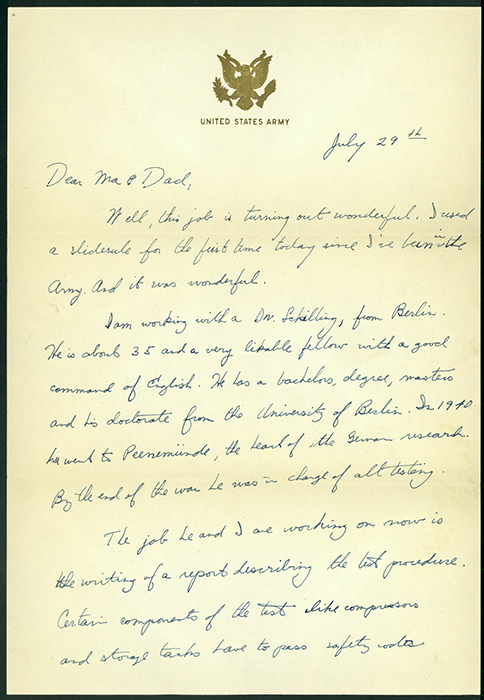 UNITED STATES ARMY
July 29th
Dear Ma & Dad,
Well, this job is turning out wonderful. I used
a sliderule for the first time today since I've been in the
Army. And it was wonderful.
I am working with a Dr. Schilling, from Berlin.
He is about 35 and a very likable fellow with a good
command of English. He has a bachelors, degree, masters
and his doctorate from the University of Berlin. In 1940
he went to Peenemünde, the heart of the German research.
By the end of the war he was in charge of all testing.
The job he and I are working on now is
the writing of a report describing the test procedure.
Certain components of the test like compressors
and storage tanks have to pass safety codes